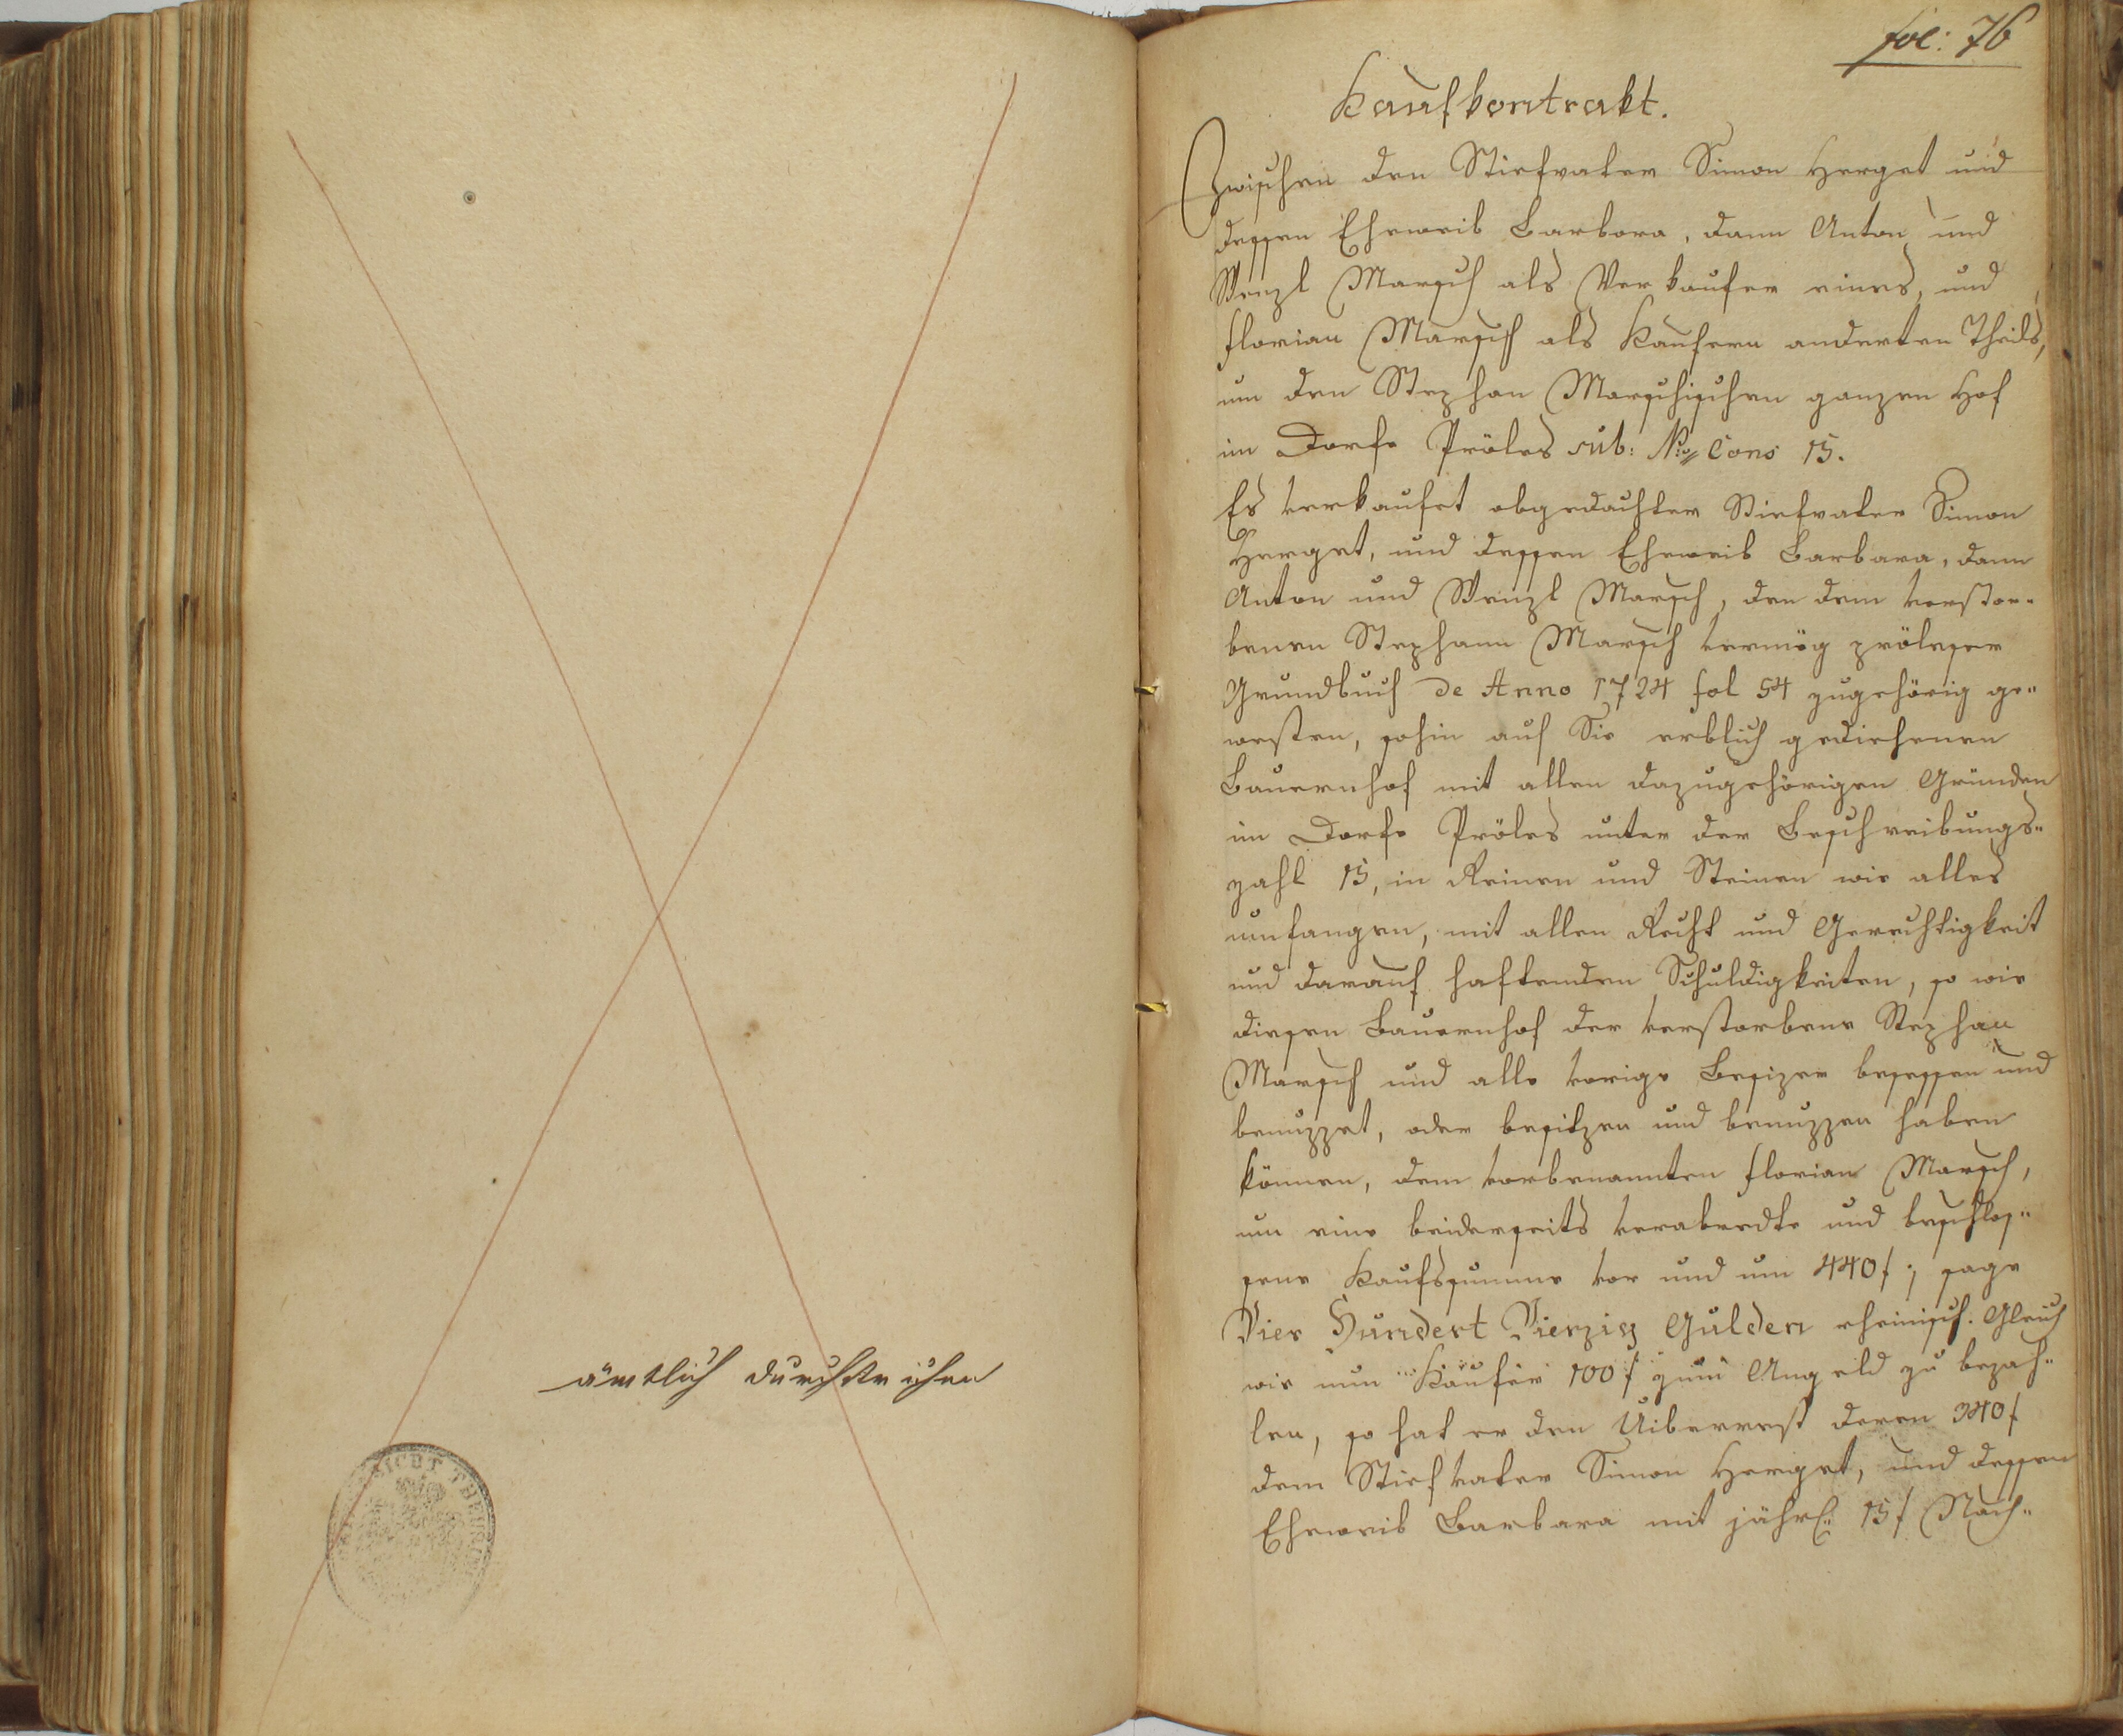 ämtlich durchstrichen
fol: 76
Kaufkontrakt.
Zwischen den Stiefvater Simon Herget und
dessen Eheweib Barbora, dann Anton und
Wenzl Marsch als Verkaufer eines, und
Florian Marsch als Kaufern anderten Theils,
um den Stephan Marschischen ganzen Hof
im Dorfe Pröles sub: Nro Cons 15.
Es verkaufet obgedachter Stiefvater Simon
Herget, und dessen Eheweib Barbara, dann
Anton und Wenzl Marsch, den dem verstor-
benen Stephann Marsch vermög pröleser
Grundbuch de Anno 1724 fol 54 zugehörig ge-
westen, sohin auf Sie erblich gediehenen
Bauernhof mit allen dazugehörigen Gründen
im Dorfe Pröles unter der Beschreibungs-
zahl 15, in Reinen und Steinen wie alles
umfangen, mit allen Recht und Gerechtigkeit
und darauf haftenden Schuldigkeiten, so wie
diesen Bauernhof der verstorbene Stephan
Marsch und alle vorige Besizer besessen und
benuzzet, oder besitzen und benuzzen haben
können, dem vorbenannten Florian Marsch,
um eine beiderseits veraberdte und beschlos-
sene Kaufssumme vor und um 440 f; sage
Vier Hundert Vierzig Gulden rheinisch. Gleich
wie nun Käufer 100 f zum Angeld zu bezah-
len, so hat er den Uiberrest deren 340 f
dem Stiefvater Simon Herget, und dessen
Eheweib Barbara mit jährl: 15 f Nach-